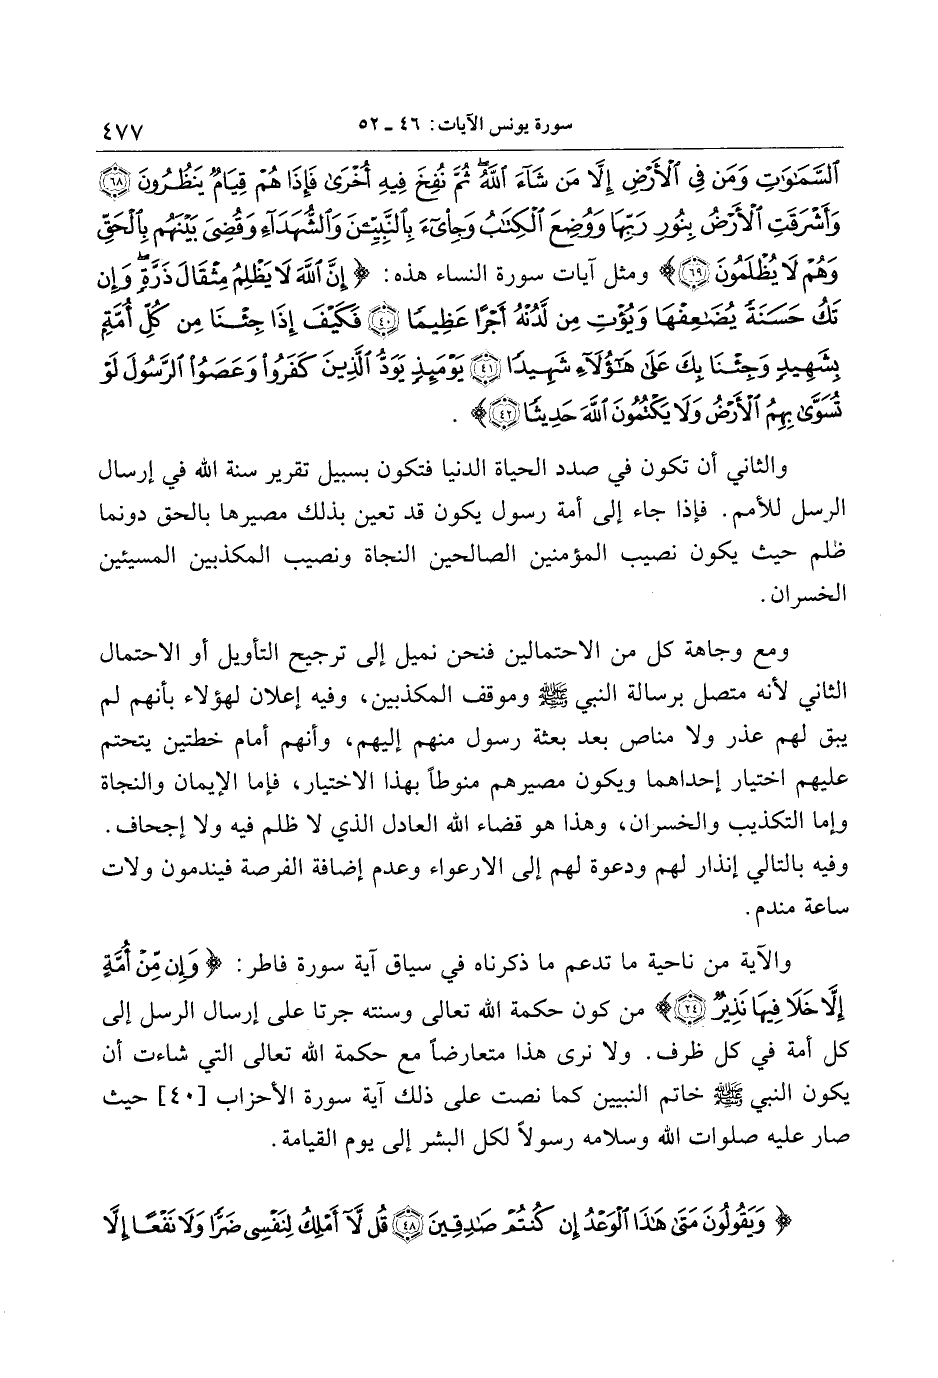 سورة يونس الآيات: ٤٦ ـ ٥٢ ٤٧٧
ٱلسَّمَٰوَٰتِ وَمَن فِى ٱلْأَرْضِ إِلَّا مَن شَآءَ ٱللَّهُ ۖ ثُمَّ نُفِخَ فِيهِ أُخْرَىٰ فَإِذَا هُمْ قِيَامٌ يَنظُرُونَ ﴿٦٨﴾
وَأَشْرَقَتِ ٱلْأَرْضُ بِنُورِ رَبِّهَا وَوُضِعَ ٱلْكِتَٰبُ وَجِا۟ىٓءَ بِٱلنَّبِيِّۦنَ وَٱلشُّهَدَآءِ وَقُضِىَ بَيْنَهُم بِٱلْحَقِّ
وَهُمْ لَا يُظْلَمُونَ ﴿٦٩﴾﴾ ومثل آيات سورة النساء هذه: ﴿إِنَّ ٱللَّهَ لَا يَظْلِمُ مِثْقَالَ ذَرَّةٍ ۖ وَإِن
تَكُ حَسَنَةً يُضَٰعِفْهَا وَيُؤْتِ مِن لَّدُنْهُ أَجْرًا عَظِيمًا ﴿٤٠﴾ فَكَيْفَ إِذَا جِئْنَا مِن كُلِّ أُمَّةٍ
بِشَهِيدٍ وَجِئْنَا بِكَ عَلَىٰ هَٰٓؤُلَآءِ شَهِيدًا ﴿٤١﴾ يَوْمَئِذٍ يَوَدُّ ٱلَّذِينَ كَفَرُوا۟ وَعَصَوُا۟ ٱلرَّسُولَ لَوْ
تُسَوَّىٰ بِهِمُ ٱلْأَرْضُ وَلَا يَكْتُمُونَ ٱللَّهَ حَدِيثًا ﴿٤٢﴾﴾ .
والثاني أن تكون في صدد الحياة الدنيا فتكون بسبيل تقرير سنة الله في إرسال
الرسل للأمم. فإذا جاء إلى أمة رسول يكون قد تعين بذلك مصيرها بالحق دونما
ظلم حيث يكون نصيب المؤمنين الصالحين النجاة ونصيب المكذبين المسيئين
الخسران.
ومع وجاهة كل من الاحتمالين فنحن نميل إلى ترجيح التأويل أو الاحتمال
الثاني لأنه متصل برسالة النبي ﷺ وموقف المكذبين، وفيه إعلان لهؤلاء بأنهم لم
يبق لهم عذر ولا مناص بعد بعثة رسول منهم إليهم، وأنهم أمام خطتين يتحتم
عليهم اختيار إحداهما ويكون مصيرهم منوطاً بهذا الاختيار، فإما الإيمان والنجاة
وإما التكذيب والخسران، وهذا هو قضاء الله العادل الذي لا ظلم فيه ولا إجحاف.
وفيه بالتالي إنذار لهم ودعوة لهم إلى الارعواء وعدم إضافة الفرصة فيندمون ولات
ساعة مندم.
والآية من ناحية ما تدعم ما ذكرناه في سياق آية سورة فاطر: ﴿وَإِن مِّنْ أُمَّةٍ
إِلَّا خَلَا فِيهَا نَذِيرٌ ﴿٢٤﴾﴾ من كون حكمة الله تعالى وسنته جرتا على إرسال الرسل إلى
كل أمة في كل ظرف. ولا نرى هذا متعارضاً مع حكمة الله تعالى التي شاءت أن
يكون النبي ﷺ خاتم النبيين كما نصت على ذلك آية سورة الأحزاب [٤٠] حيث
صار عليه صلوات الله وسلامه رسولاً لكل البشر إلى يوم القيامة.
﴿وَيَقُولُونَ مَتَىٰ هَٰذَا ٱلْوَعْدُ إِن كُنتُمْ صَٰدِقِينَ ﴿٤٨﴾ قُل لَّآ أَمْلِكُ لِنَفْسِى ضَرًّا وَلَا نَفْعًا إِلَّا